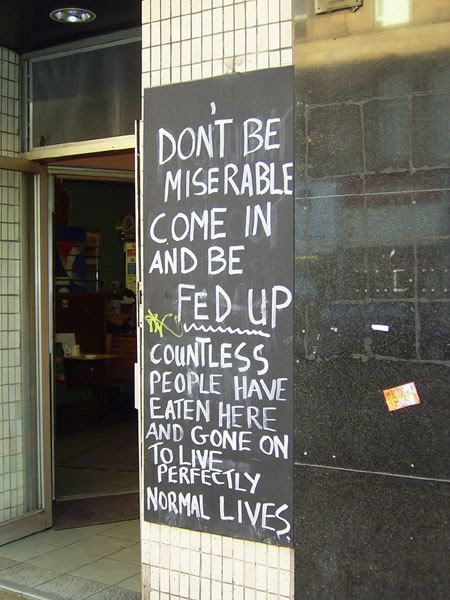 DON'T BE
MISERABLE
COME IN
AND BE
FED UP
COUNTLESS
PEOPLE HAVE
EATEN HERE
AND GONE ON
TO LIVE
PERFECTLY
NORMAL LIVES.